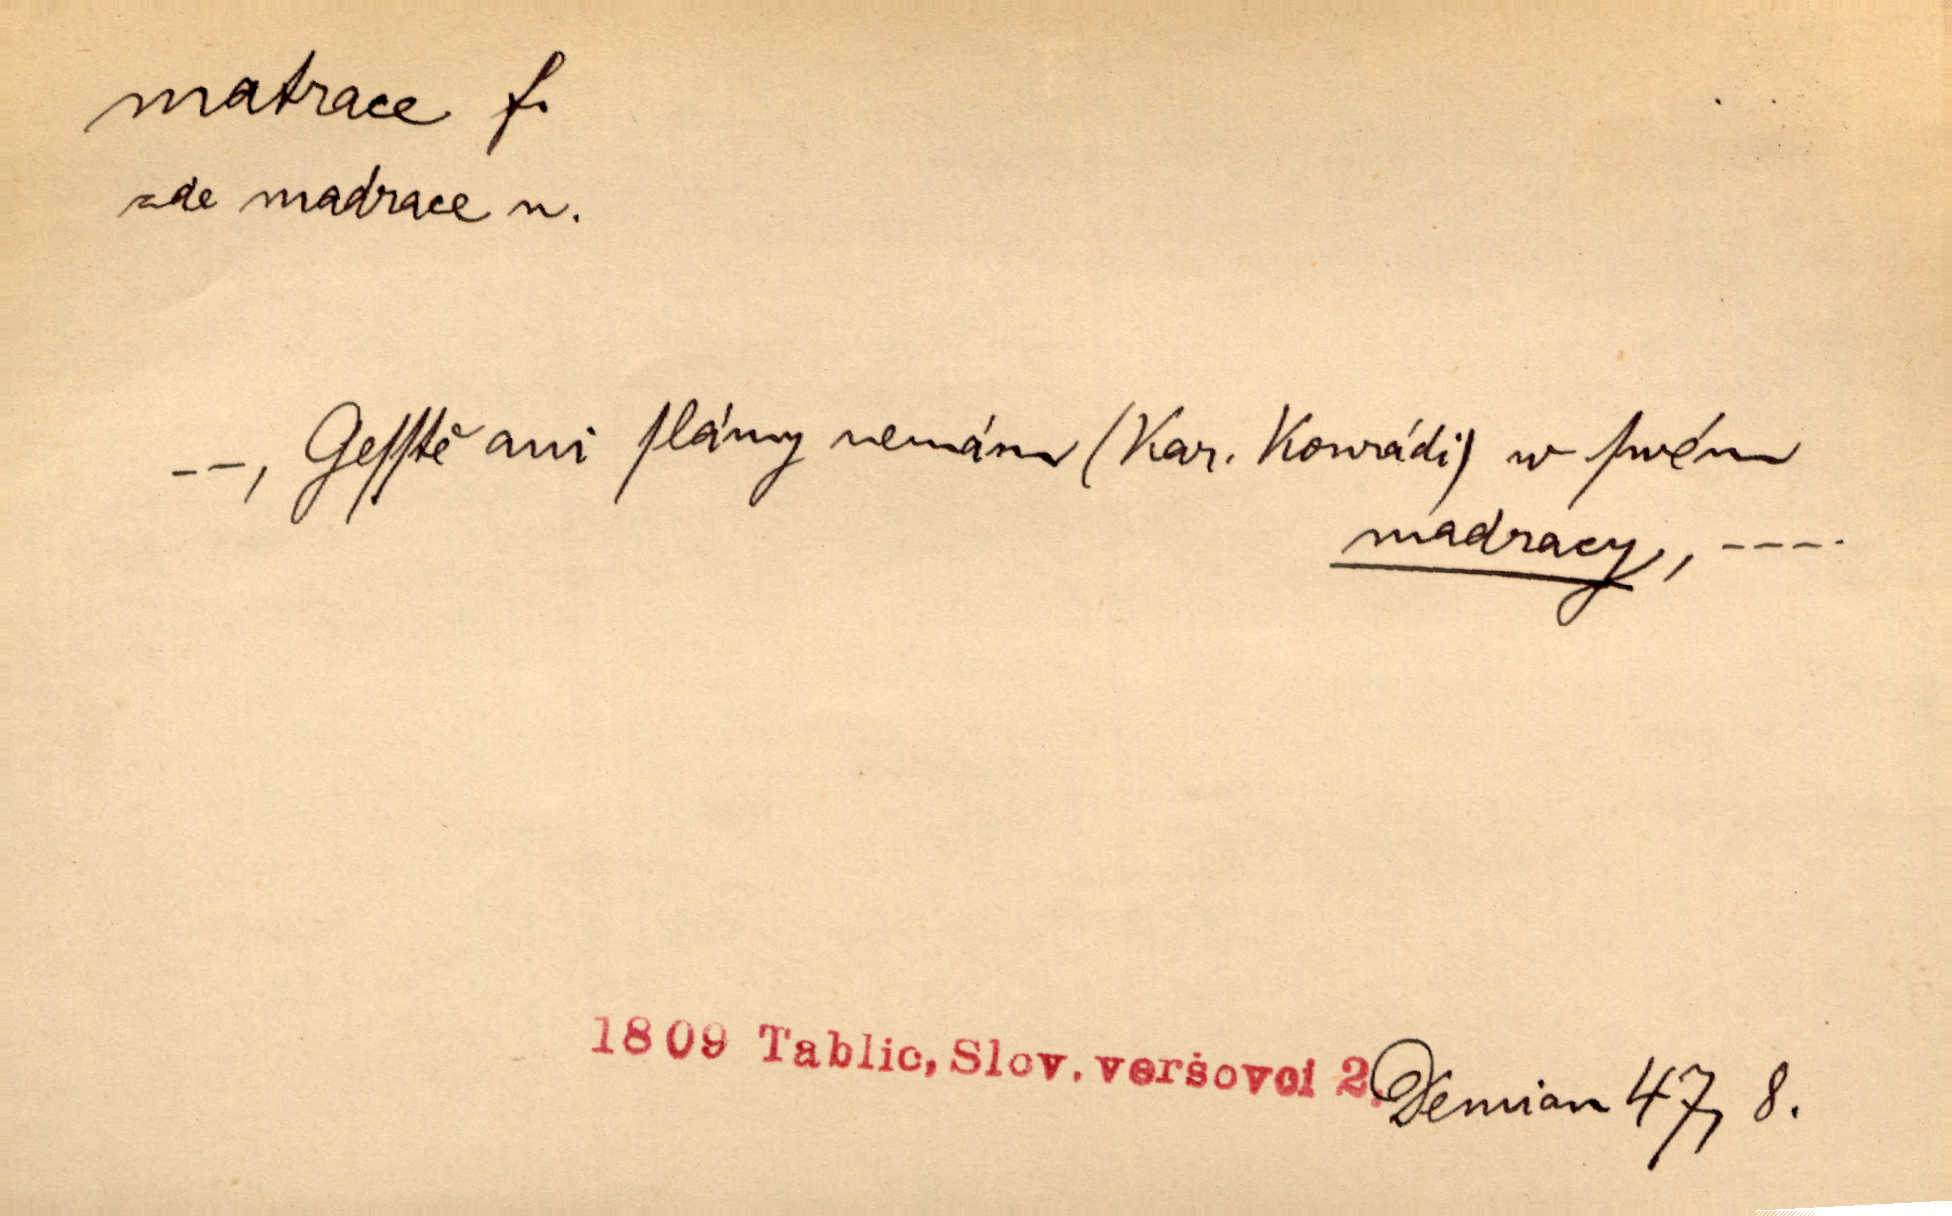 matrace f.
zde madrace n.
--, Geſſtě ani ſlámy nemám (Kar. Konrádi) w ſwém
madracy, ----.
1809 Tablic, Slov. veršovci 2. Demian 47, 8.